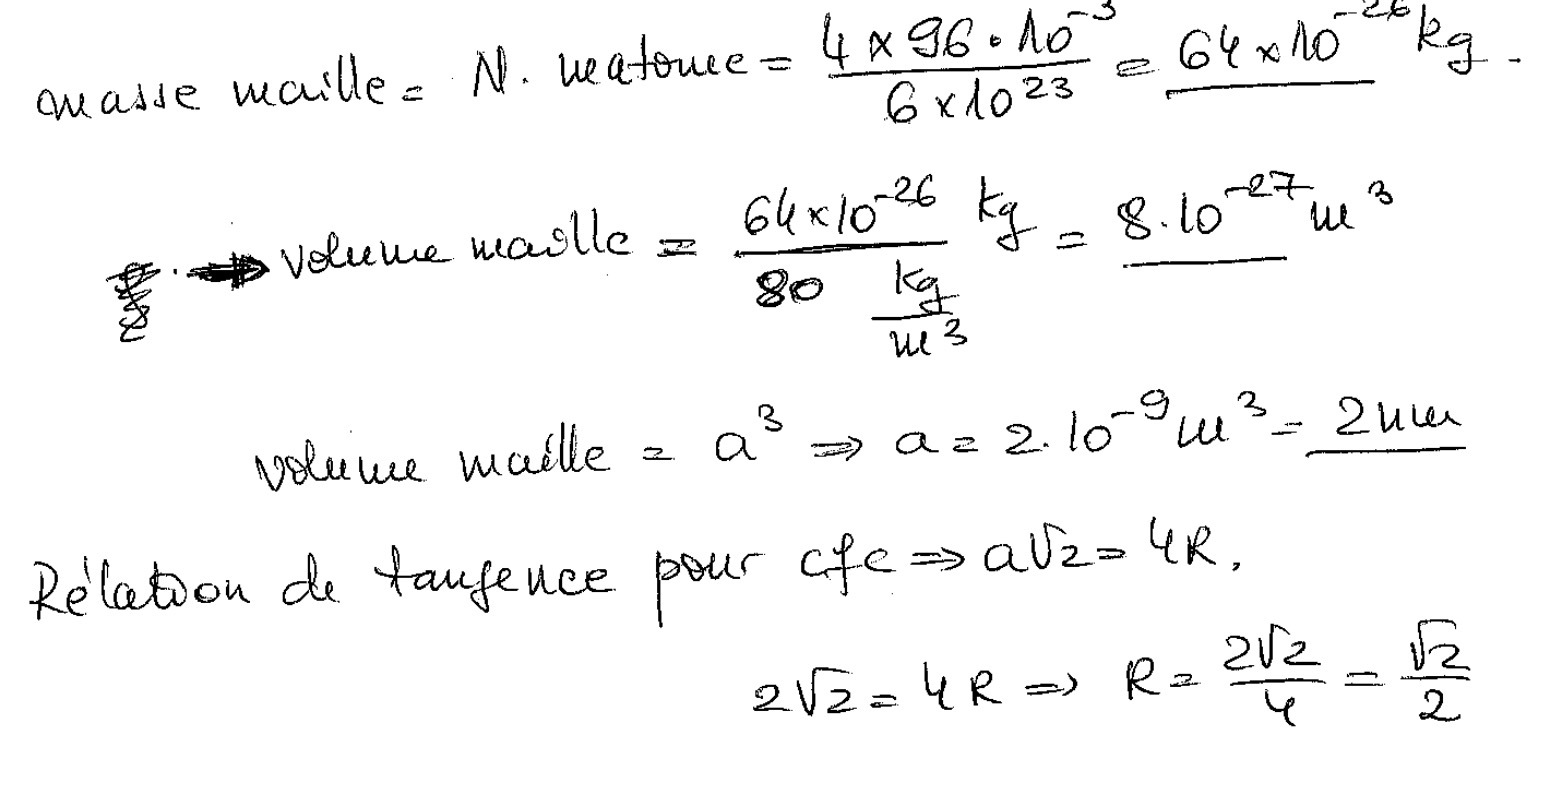 masse maille = N. matome = 4 × 96 • 10^-3 / 6 × 10^23 = 64 × 10^-26 kg.
→ volume maille = 64 × 10^-26 kg / 80 kg/m^3 = 8.10^-27 m^3
volume maille = a^3 ⇒ a = 2.10^-9 m^3 = 2nm
Rélation de tangence pour cfc ⇒ a√2 = 4R.
2√2 = 4R ⇒ R = 2√2/4 = √2/2